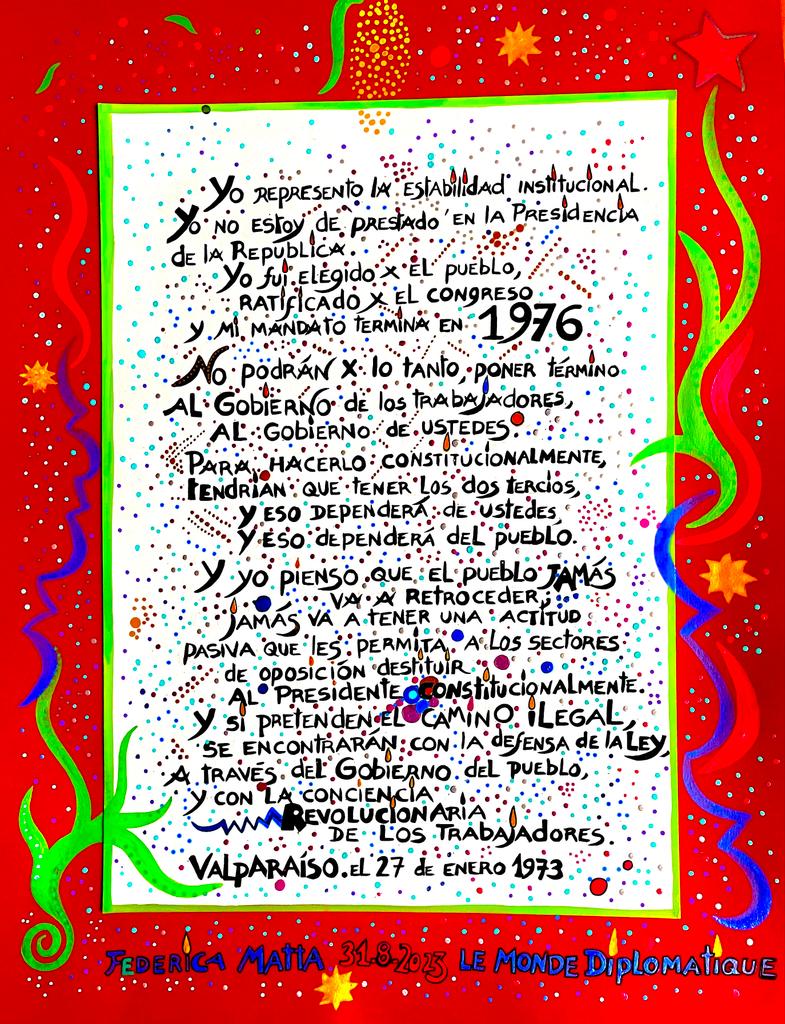 Yo REPRESENTO lA ESTABILIDAD INSTITUCIONAL.
Yo NO ESTOY DE PRESTADO EN LA PRESIDENCIA
DE LA REPUBLICA.
Yo fUI ELEGIDO X EL PUEBLO,
RATIFICADO X EL CONGRESO
Y MI MANDATO TERMINA EN 1976
No PODRÁN X lo TANTO, PONER TÉRMINO
AL GOBIERNO DE LOS TRABAJADORES,
AL GOBIERNO DE USTEDES.
PARA HACERLO CONSTITUCIONALMENTE,
TENDRIAN QUE TENER LOS DOS TERCIOS,
Y ESO DEPENDERÁ DE USTEDES,
Y ESO DEPENDERÁ DEL PUEBLO.
Y YO PIENSO QUE EL PUEBLO JAMÁS
VA A RETROCEDER;
JAMÁS VA A TENER UNA ACTITUD
PASIVA QUE LES PERMITA A LOS SECTORES
DE OPOSICIÓN DESTITUIR
AL PRESIDENTE CONSTITUCIONALMENTE.
Y SI PRETENDEN EL CAMINO ILEGAL,
SE ENCONTRARÁN CON LA DEFENSA DE LA LEY,
A TRAVÉS DEL GOBIERNO DEL PUEBLO,
Y CON LA CONCIENCIA
REVOLUCIONARIA
DE LOS TRABAJADORES.
VALPARAÍSO. EL 27 DE ENERO 1973
FEDERICA MATTA 31.8.2023 LE MONDE DIPLOMATIQUE